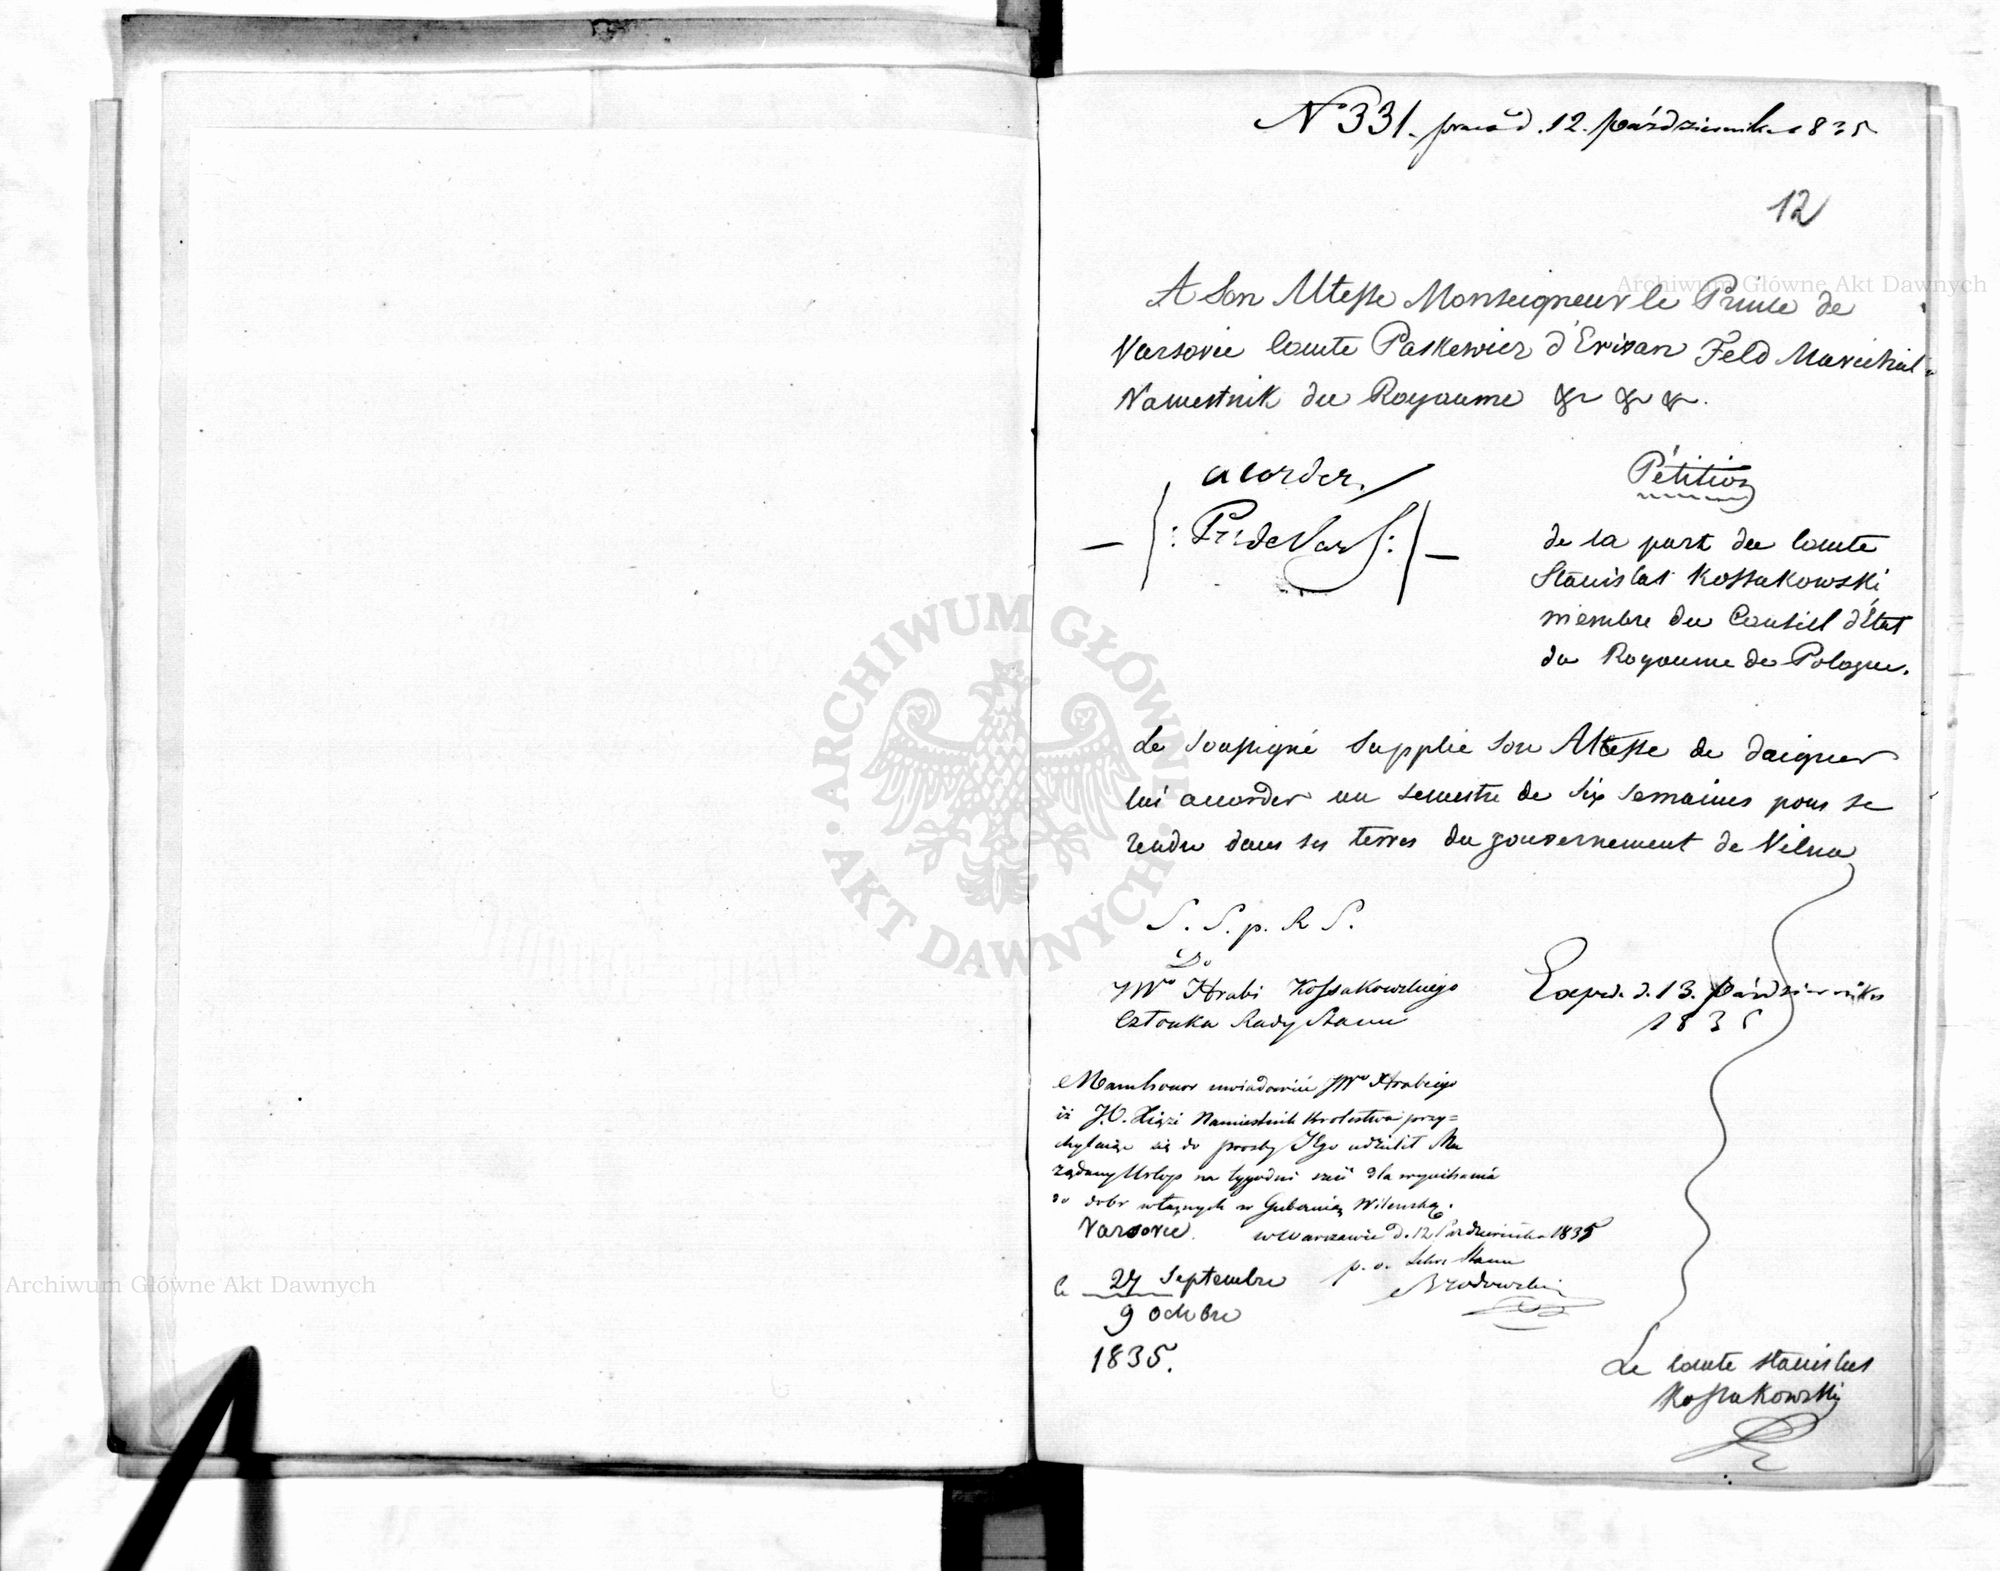 N 331. praes d. 12. Października 1835
12
A Son Altesse Monseigneur le Prince de
Varsovie Comte Paskewicz d'Erivan Feld Maréchal
Namestnik du Royaume & & &.
acorder.
Pr: de Vars:
Pétition
de la part du Comte
Stanislas Kossakowski
membre du Conseil d'État
du Royaume de Pologne.
Le soussigné supplie son Altesse de daigner
lui accorder un semestre de six semaines pour se
rendre dans ses terres du gouvernement de Vilna
S. S. p. R S.
Do
JWo Hrabi Kossakowskiego
Członka Rady Stanu
Exped. d. 13. Października
1835
Mam honor uwiadomić JWo Hrabiego
iż J.O. Xiąże Namiestnik Królestwa przy=
chylając się do prośby Jego udzielił Mu
żądany Urlop na tygodni sześć dla wyjechania
do dobr własnych w Gubernią Wileńską.
w Warszawie d. 12 Października 1835
p. o. Sekr. Stanu
Brodowski
Varsovie.
le 27 Septembre
9 Octobre
1835.
Le Comte Stanislas
Kossakowski
Archiwum Główne Akt Dawnych
Archiwum Główne Akt Dawnych
ARCHIWUM GŁÓWNE AKT DAWNYCH